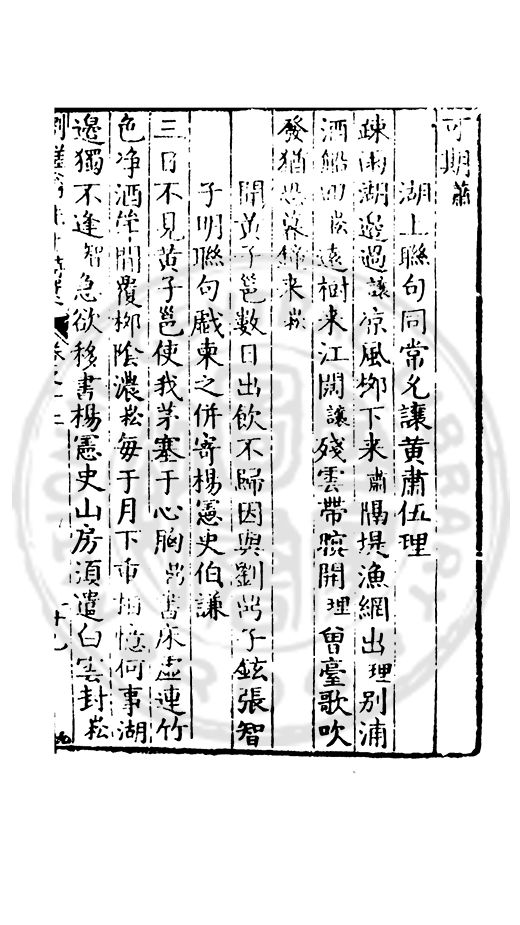 可期蕭
湖上聯句同常允讓黄肅伍理
疎雨湖邉過讓涼風柳下来肅隔堤漁網出理别浦
酒船回崧遠樹来江闊讓殘雲帶晚開理曽臺歌吹
發猶恐落歸来崧
聞黄子邕數日出飲不歸因與劉子鉉張智
子明聯句戲柬之併寄楊憲史伯謙
三日不見黄子邕使我茅塞于心胸書床虚連竹
色净酒生間覆柳陰濃崧每于月下憶何事湖
邉獨不逢智急欲移書楊憲史山房須遣白雲封崧